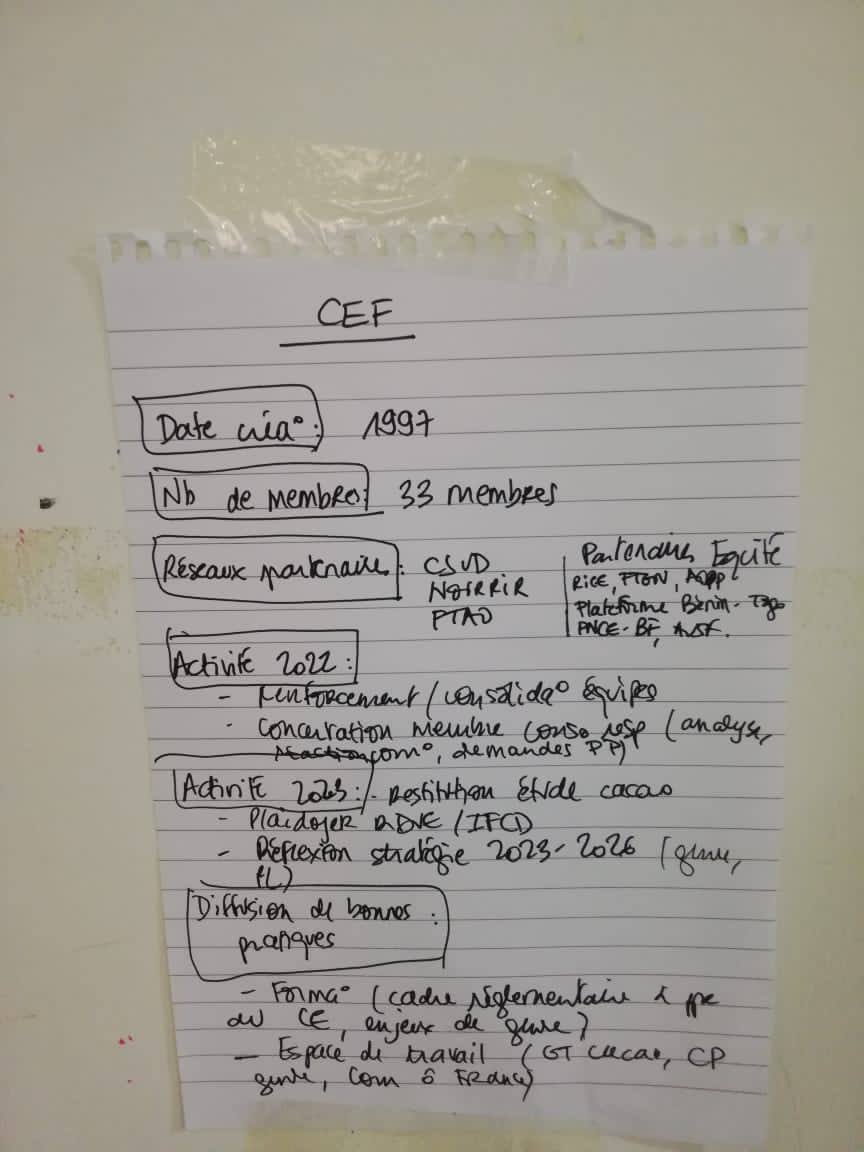 CEF
Date créa° : 1997
Nb de membres : 33 membres
Réseaux partenaires : CSUD
NOURRIR
PTAO
Partenaires Equité
RICE, FTGN, AOPP
Plateforme Bénin - Togo
PNCE - BF, AVSF.
Activité 2022 :
- Renforcement / consolida° équipes
- Concertation membre conso resp (analyse,
com°, demandes PP)
Activité 2023 : - Restitution étude cacao
- Plaidoyer / IFCD
- Réflexion stratégie 2023 - 2026 (genre,
FL)
Diffusion de bonnes :
pratiques
- Forma° (cadre réglementaire &
du CE, enjeux de genre)
- Espace de travail (GT cacao, CP
genre, Com ô France)